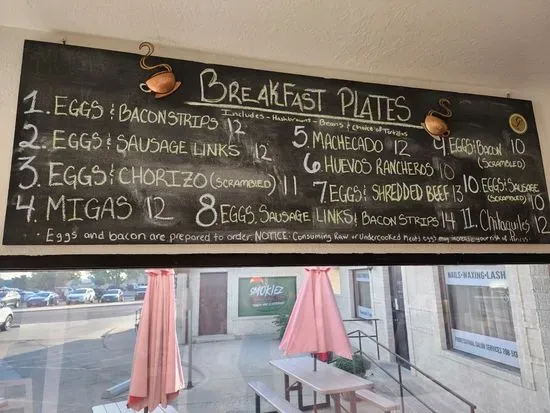 BREAKFAST PLATES
Includes - Hashbrowns - Beans & Choice of Tortillas
1. EGGS & BACON STRIPS 12
2. EGGS & SAUSAGE LINKS 12
3. EGGS & CHORIZO (SCRAMBLED) 11
4. MIGAS 12
5. MACHECADO 12
6 HUEVOS RANCHEROS 10
7 EGGS & SHREDDED BEEF 13
8 EGGS, SAUSAGE LINKS & BACON STRIPS 14
9 EGGS & BACON 10
(SCRAMBLED)
10 EGGS & SAUSAGE
(SCRAMBLED) 10
11. Chilaquiles 12
• Eggs and bacon are prepared to order. NOTICE: Consuming Raw or Undercooked Meats eggs may increase your risk of
SMOKIEZ
NAILS-WAXING-LASH
PROFESSIONAL SALON SERVICES